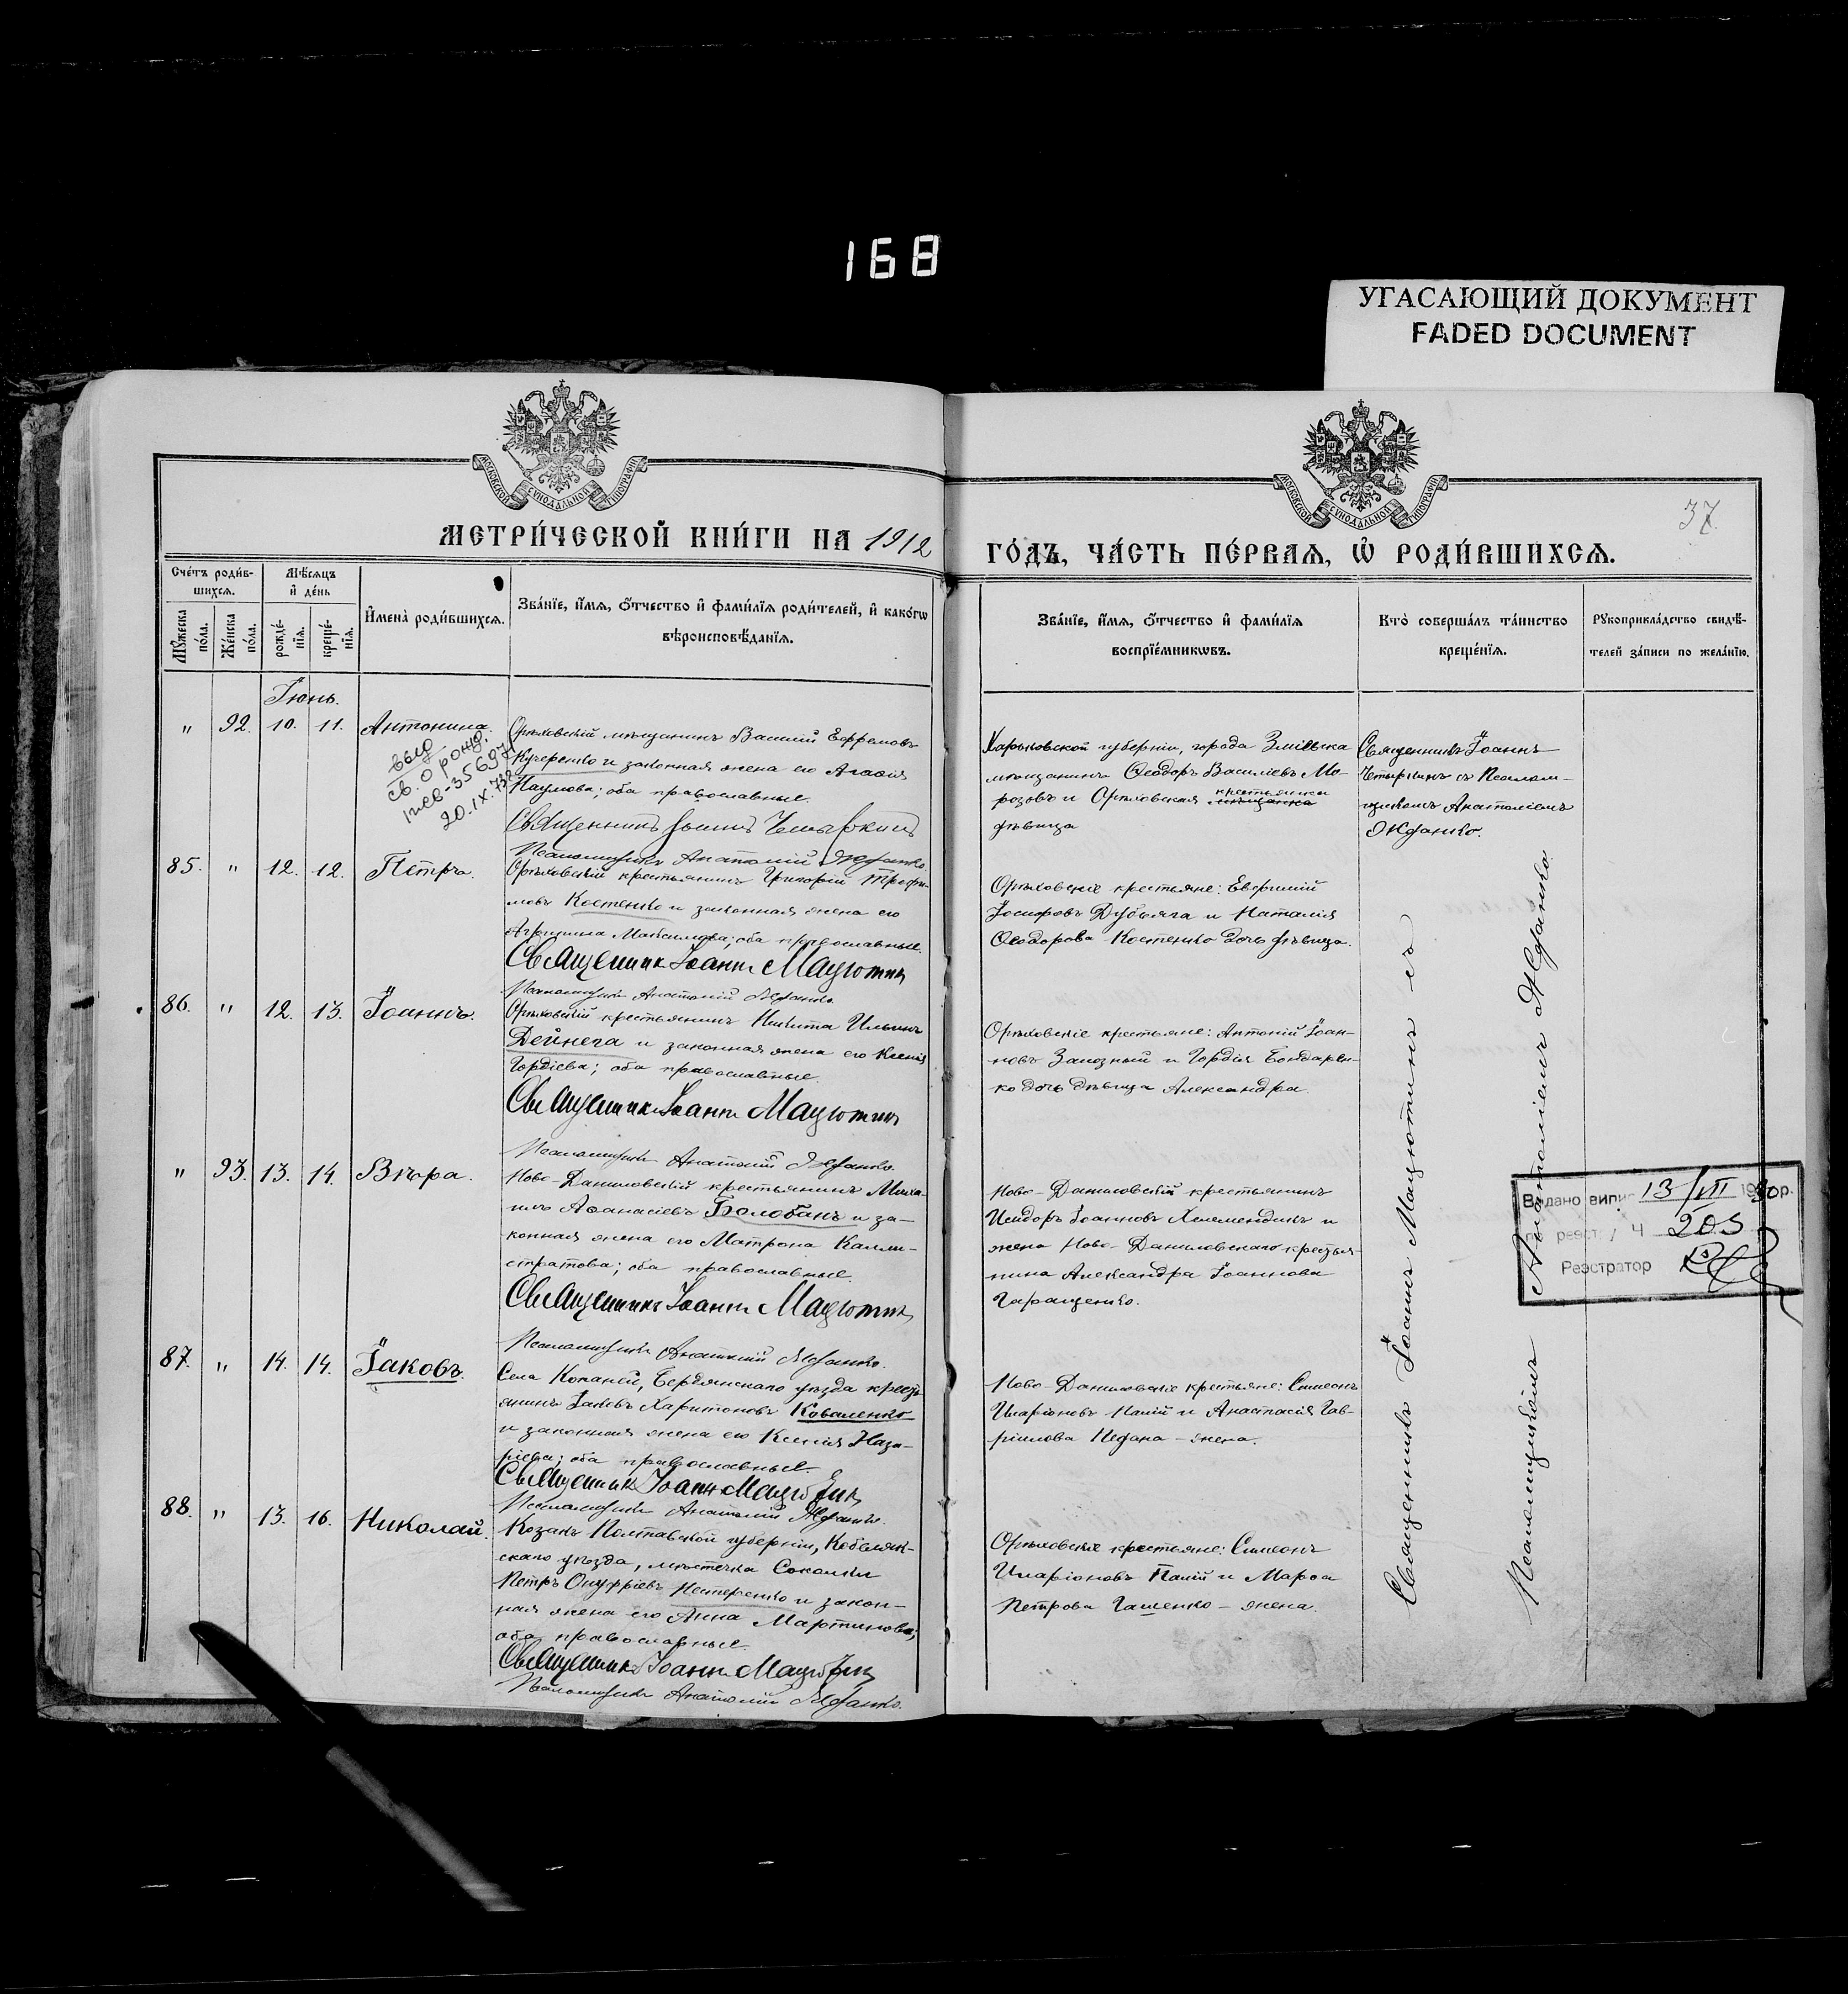 168
УГАСАЮЩИЙ ДОКУМЕНТ
FADED DOCUMENT
МОСКОВСКОЙ СѴНОДАЛЬНОЙ ТИПОГРАФІИ
МОСКОВСКОЙ СѴНОДАЛЬНОЙ ТИПОГРАФІИ
37.
МЕТРИ́ЧЕСКОЙ КНИ́ГИ НА 1912
ГО́ДЪ, ЧА́СТЬ ПЕ́РВАѦ, Ѡ҆ РОДИ́ВШИХСѦ.
Сче́тъ роди́в-
шихсѧ.
Мꙋ́жеска по́ла.
Же́нска по́ла.
Мѣ́сѧцъ
и҆ де́нь
рожде́-
нїѧ.
креще́-
нїѧ.
И҆мена̀ роди́вшихсѧ.
Зва́нїе, и҆́мѧ, ѻ҆́тчество и҆ фами́лїѧ роди́телей, и҆ како́гѡ
вѣроисповѣ́данїѧ.
Зва́нїе, и҆́мѧ, ѻ҆́тчество и҆ фами́лїѧ
воспрїе́мникѡвъ.
Кто̀ соверша́лъ та́инство
креще́нїѧ.
Рꙋкоприкла́дство свидѣ́-
телей за́писи по жела́нїю.
Іюнь.
" 92. 10. 11. Антонина.
св. о рожд.
20.IX.73
Орѣховскій мѣщанинъ Василій Ефремовъ
Кучеренко и законная жена его Агафія
Наумова; оба православные.
Священникъ Іоаннъ Чемыркинъ
Псаломщикъ Анатолій
Харьковской губерніи, города Зміева
мѣщанинъ Ѳеодоръ Василіевъ Мо-
розовъ и Орѣховская мѣщанка
крестьянка
дѣвица
Священникъ Іоаннъ
съ Псалом-
щикомъ Анатоліемъ
85. " 12. 12. Петръ.
Орѣховскій крестьянинъ Григорій Трофи-
мовъ Костенко и законная жена его
Агрипина Максимова; оба православные.
Священник Іоанн Мацютин
Псаломщикъ Анатолій
Орѣховскіе крестьяне: Евфимій
Іосифовъ Дубяга и Наталія
Ѳеодорова Костенко дочь дѣвица.
86. " 12. 13. Іоаннъ.
Орѣховскій крестьянинъ Никита Ильинъ
Дейнега и законная жена его Ксенія
Гордіева; оба православные.
Священник Іоанн Мацютин
Псаломщикъ Анатолій
Орѣховскіе крестьяне: Антоній Іоан-
новъ Залозный и Гордія Бондарен-
ко дочь дѣвица Александра.
" 93. 13. 14. Вѣра.
Ново-Даниловскій крестьянинъ Миха-
илъ Аѳанасіевъ Болобанъ и за-
конная жена его Матрона Калли-
стратова; оба православные.
Священникъ Іоанн Мацютин
Псаломщикъ Анатолій
Ново-Даниловскій крестьянинъ
Исидоръ Іоанновъ и
жена Ново-Даниловскаго крестья-
нина Александра Іоаннова
Гаращенко.
87. " 14. 14. Іаковъ.
Села Копаней, Бердянскаго уѣзда кресть-
янинъ Іаковъ Харитоновъ Коваленко
и законная жена его Ксенія Наза-
ріева; оба православные.
Священник Іоанн Мацютин
Псаломщикъ Анатолій
Ново-Даниловскіе крестьяне: Симеонъ
Иларіоновъ Палій и Анастасія Гав-
ріилова – жена.
88. " 13. 16. Николай.
Козакъ Полтавской губерніи, Кобеляк-
скаго уѣзда, мѣстечка Соколки
Петръ Онуфріевъ Нестеренко и закон-
ная жена его Анна Мартинова;
оба православные.
Священник Іоанн Мацютин
Псаломщикъ Анатолій
Орѣховскіе крестьяне: Симеонъ
Иларіоновъ Палій и Марѳа
Петрова Гашенко – жена.
Священникъ Іоаннъ Мацютинъ съ
Псаломщикомъ Анатоліемъ
Видано випис 13/VII р.
реєстр Ч 205
Реєстратор